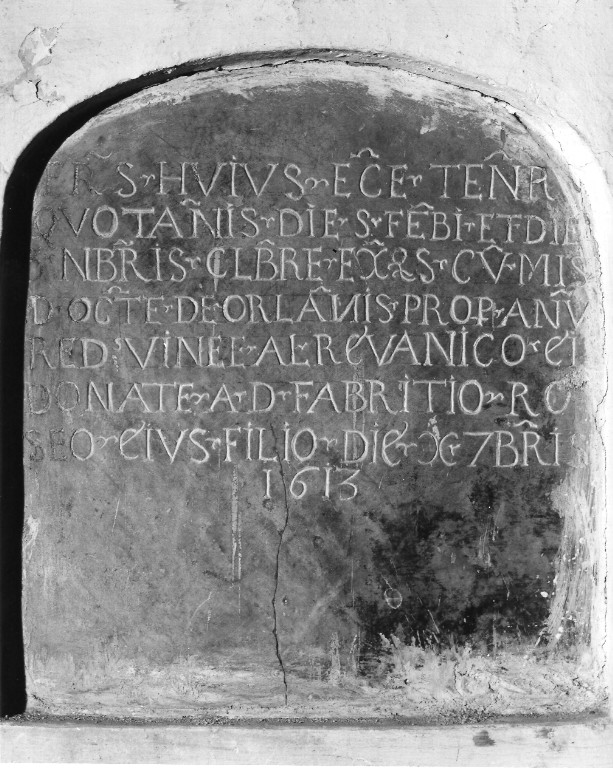 FR̃S HVIVS ECĈE TEÑR
QVOTAÑIS DIE S FÊBI ET DIE
NBR̃IS CLBR̃E EX̃ & S CV̂ MIS
D OCT̃E DE ORLAÑIS PROP ANV̂
RED VINEE AL REVANICO EI
DONATE A D FABRITIO RO
SEO EIVS FILIO DIE X 7BR̃I
1613